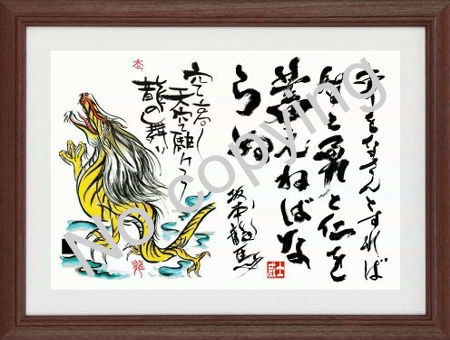 事をなさんとすれば
智と勇と仁を
蓄えねばな
らぬ
坂本龍馬
龍の舞い
No copying